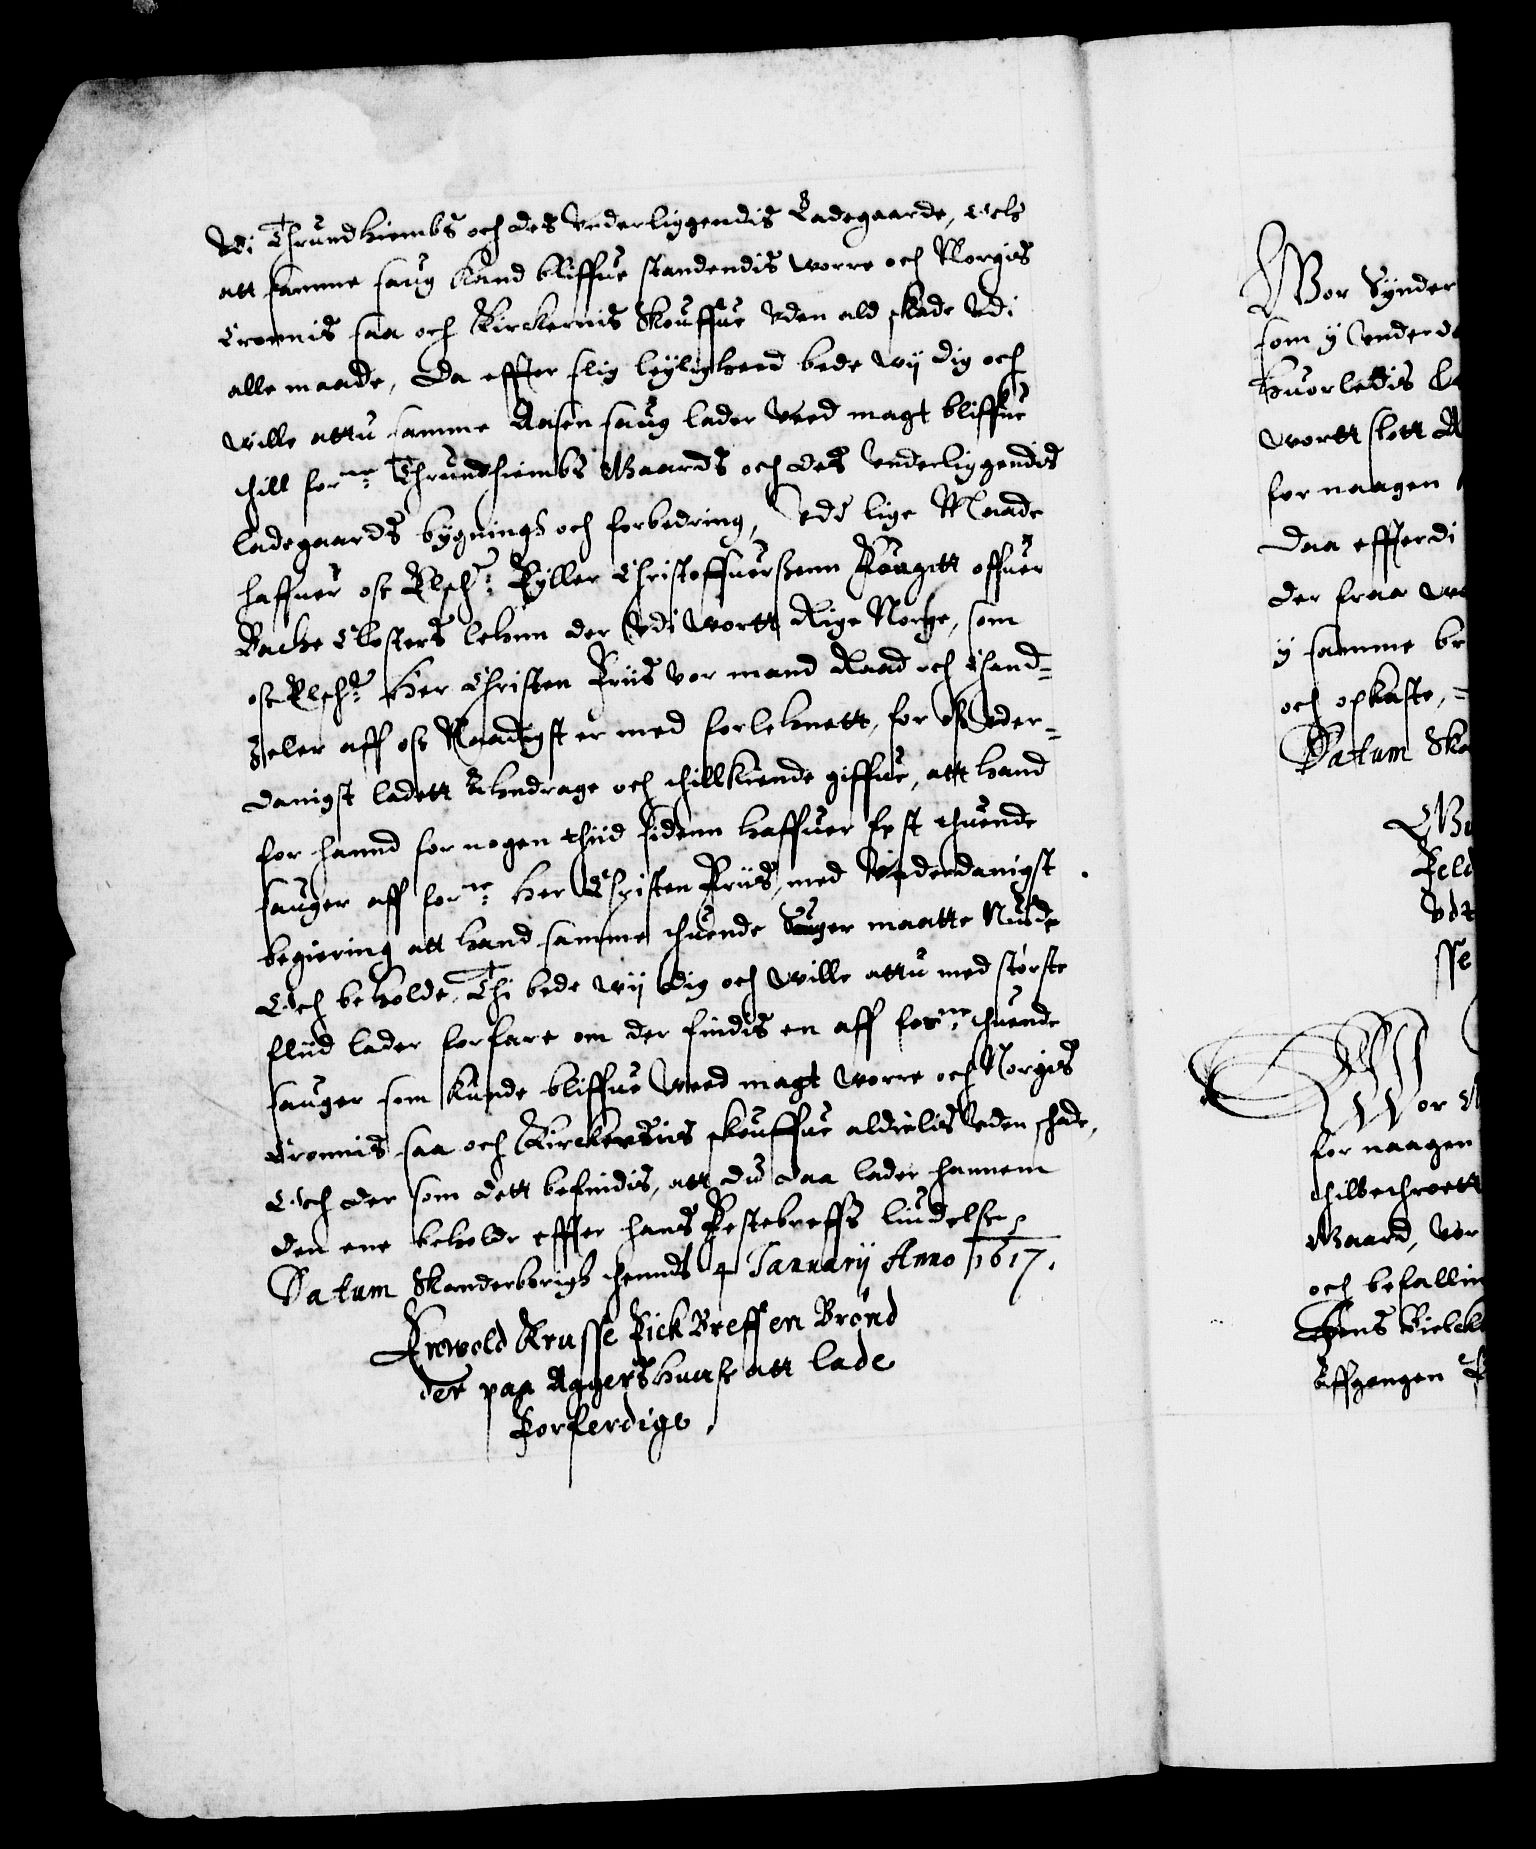 Udi Thrundhiembs och des Underliggendis Ladegaarde, Och
att samme saug kand bliffue standendis worre och Norgis
Cronnis saa och Kirckernis Skouffue uden ald skade Udi
alle maade, Da effter slig leylighed bede wij dig och
wille attu samme Aasen saug lader wed magt bliffue
thill forne: Thrundhiembs Gaards och des Underliggendis
ladegaards bygnings och forbedring, Udi lige Maade
haffuer oss Elsch: Peder Christoffuerssenn Fougitt offuer
Backe Closters lehnn der Udi wortt Rige Norge, som
oss Elsche: Her Christen Friis vor mand Raad och Cand-
zeler aff oss Naadigst er med forlehnett, for oss Under-
danigst ladett andrage och thillkiende giffue, att hand
for hannd for nogen thiid sidenn haffuer fest thuende
sauger aff forne: Her Christen Friis, med Underdanigst
begiering att hand samme thuende Sauger maatte Niude
Och beholde, Thi bede wij dig och wille attu med største
fliid lader forfare om der findis en aff forne: thuende
sauger som kunde bliffue wed magt worre och Norgis
Cronnis saa och Kirckernis skouffue aldielis uden schade,
Och der som dett befindis, att du daa lader hannem
den ene beholde effter hans Festebreffs liudelse,
Datum Skanderborigh thennd 4 Januarij Anno 1617.
Enevold Krusse Fick Breff en Brønd
der paa Aggershuuss att lade
Forferdige.
Wor Synder
som y Underda
huorledis
wortt slott A
for naagen
Daa effterdi
der fraa
y samme br
och opkaste,
Datum Ska
Feld
Udi
sse
Wor
for naagen
thilbechroett
Gaard, vor
och befalling
Jens Bielck
affgangen